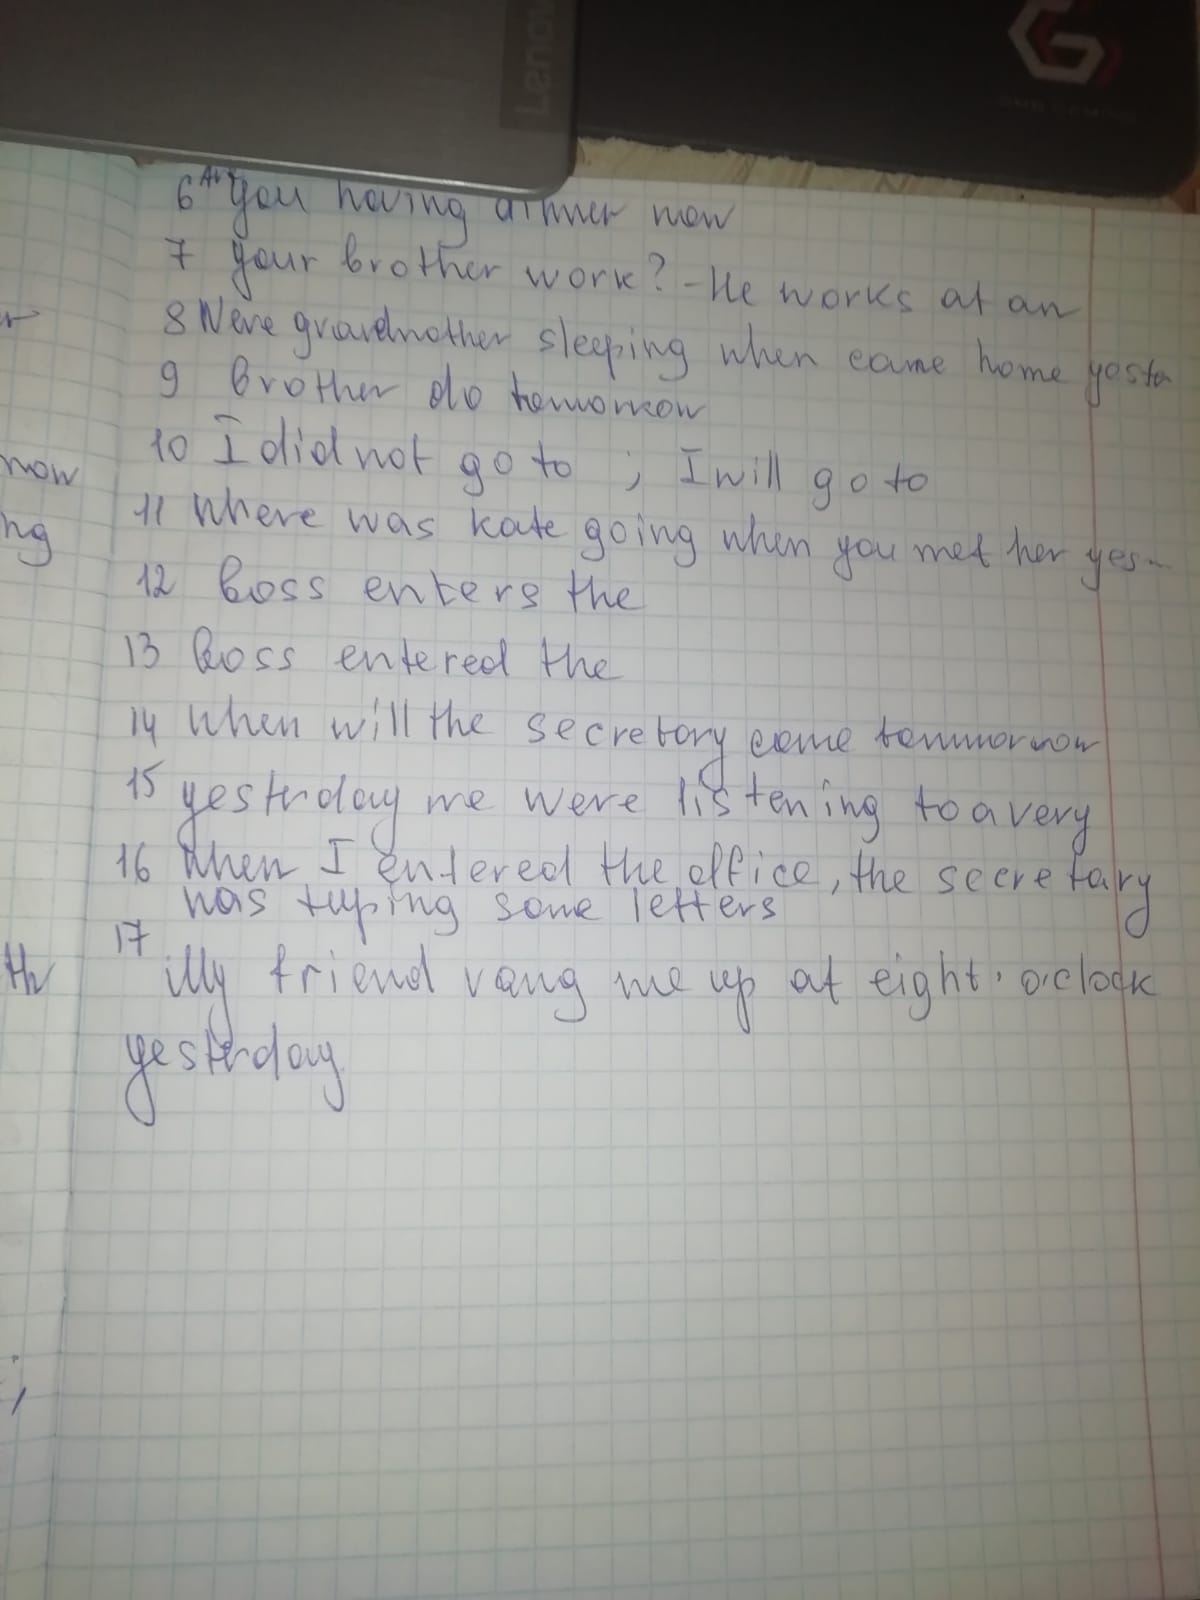 Lenov
6 Are you having dinner now
7 your brother work? - He works at an
8 Were grandnother sleeping when came home yesta
9 brother do tomorrow
10 I did not go to ; I will go to
now
11 Where was kate going when you met her yes-
ng
12 boss enters the
13 boss entered the
14 when will the secretory come tommorrow
15 yesterday me were listening to a very
16 when I entered the office, the secretary
was typing some letters
17 My friend rang me up at eight o'clock
th
yesterday